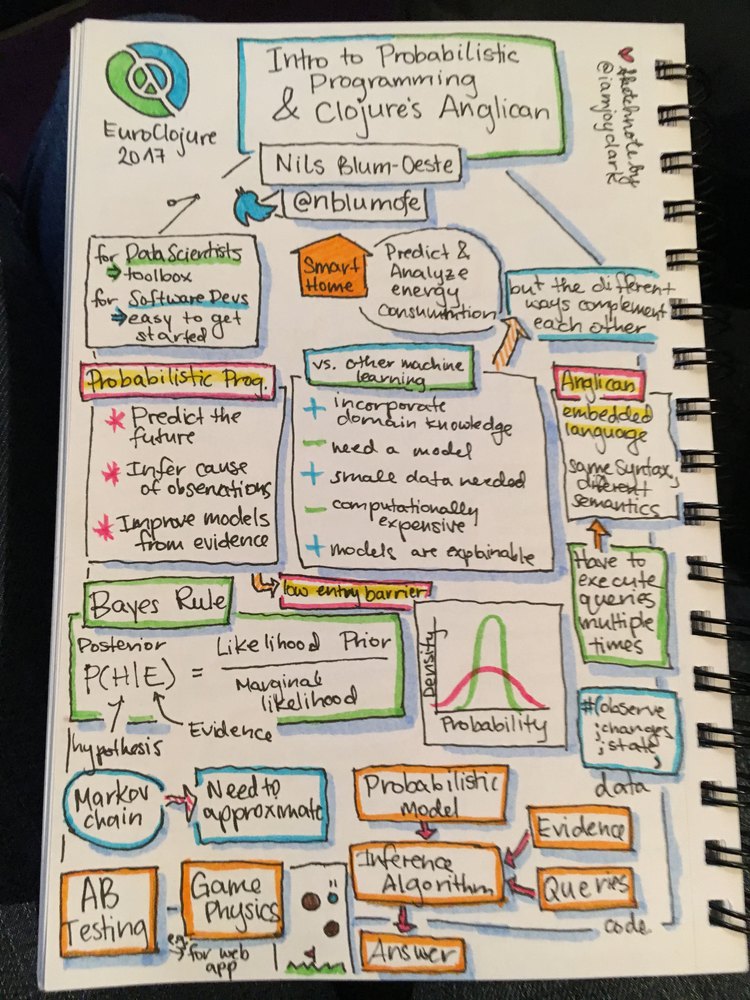 EuroClojure
2017
Intro to Probabilistic
Programming
& Clojure's Anglican
sketchnote by
@iamjoyclark
Nils Blum-Oeste
@nblumofe
for Data Scientists
toolbox
for Software Devs
easy to get
started
Smart
Home
Predict &
Analyze
energy
Consumption
but the different
ways complement
each other
Probabilistic Prog.
* Predict the
future
* Infer cause
of observations
* Improve models
from evidence
vs. other machine
learning
+ incorporate
domain knowledge
- need a model
+ small data needed
- computationally
expensive
+ models are explainable
Anglican
embedded
language
same syntax,
different
semantics
Have to
execute
queries
multiple
times
low entry barrier
Bayes Rule
Posterior
P(H|E) =
Likelihood Prior
Marginal
likelihood
hypothesis
Evidence
Density
Probability
#(observe
;changes
;state,
data
Markov
chain
Need to
approximate
Probabilistic
Model
Inference
Algorithm
Evidence
Queries
Answer
code
AB
Testing
Game
Physics
for web
app